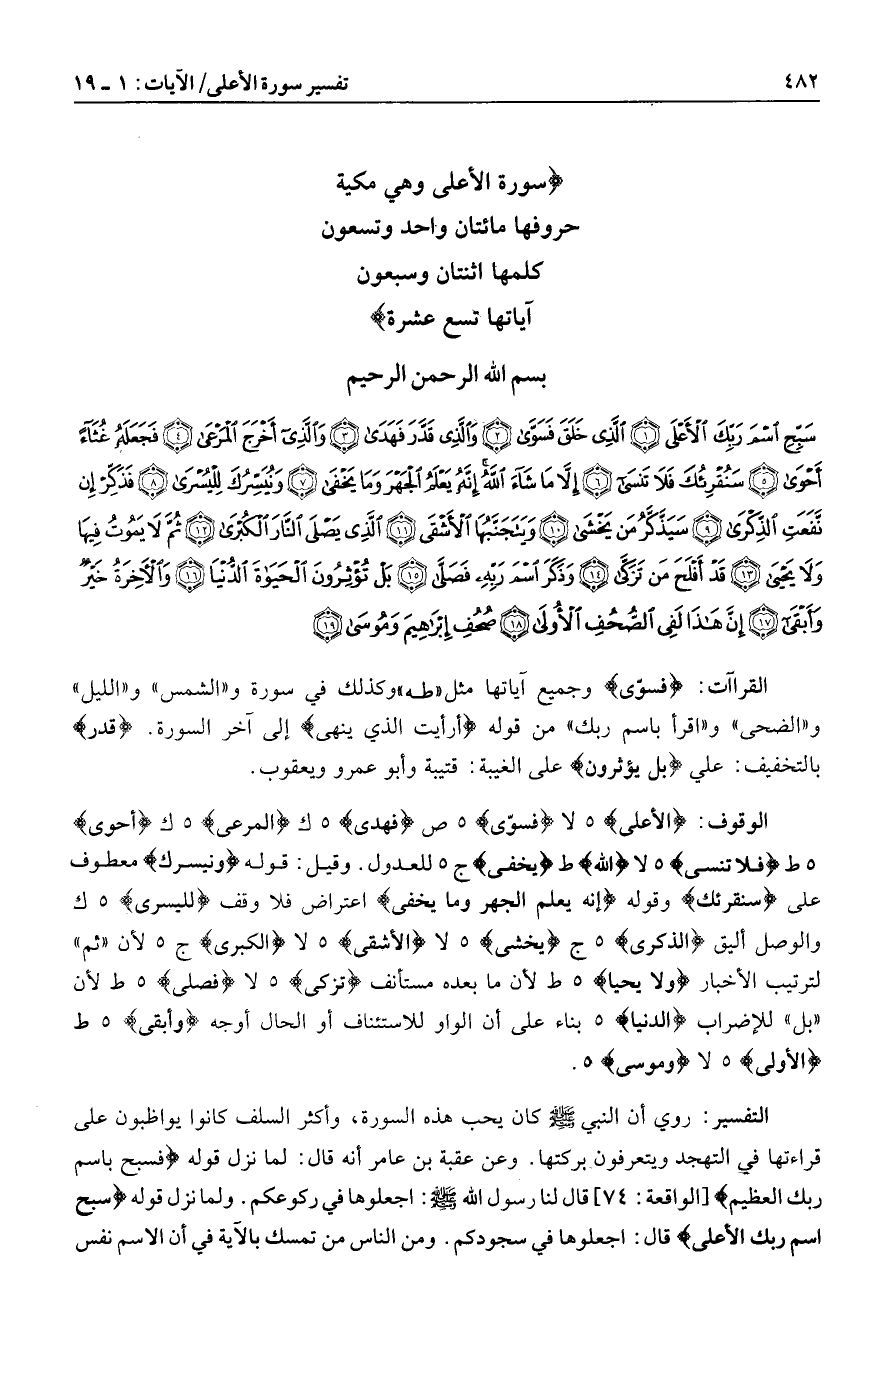 ٤٨٢ تفسير سورة الأعلى/ الآيات: ١ ـ ١٩
﴿سورة الأعلى وهي مكية
حروفها مائتان واحد وتسعون
كلمها اثنتان وسبعون
آياتها تسع عشرة﴾
بسم الله الرحمن الرحيم
سَبِّحِ ٱسْمَ رَبِّكَ ٱلْأَعْلَى ﴿١﴾ ٱلَّذِى خَلَقَ فَسَوَّىٰ ﴿٢﴾ وَٱلَّذِى قَدَّرَ فَهَدَىٰ ﴿٣﴾ وَٱلَّذِىٓ أَخْرَجَ ٱلْمَرْعَىٰ ﴿٤﴾ فَجَعَلَهُۥ غُثَآءً
أَحْوَىٰ ﴿٥﴾ سَنُقْرِئُكَ فَلَا تَنسَىٰٓ ﴿٦﴾ إِلَّا مَا شَآءَ ٱللَّهُ ۚ إِنَّهُۥ يَعْلَمُ ٱلْجَهْرَ وَمَا يَخْفَىٰ ﴿٧﴾ وَنُيَسِّرُكَ لِلْيُسْرَىٰ ﴿٨﴾ فَذَكِّرْ إِن
نَّفَعَتِ ٱلذِّكْرَىٰ ﴿٩﴾ سَيَذَّكَّرُ مَن يَخْشَىٰ ﴿١٠﴾ وَيَتَجَنَّبُهَا ٱلْأَشْقَى ﴿١١﴾ ٱلَّذِى يَصْلَى ٱلنَّارَ ٱلْكُبْرَىٰ ﴿١٢﴾ ثُمَّ لَا يَمُوتُ فِيهَا
وَلَا يَحْيَىٰ ﴿١٣﴾ قَدْ أَفْلَحَ مَن تَزَكَّىٰ ﴿١٤﴾ وَذَكَرَ ٱسْمَ رَبِّهِۦ فَصَلَّىٰ ﴿١٥﴾ بَلْ تُؤْثِرُونَ ٱلْحَيَوٰةَ ٱلدُّنْيَا ﴿١٦﴾ وَٱلْأَخِرَةُ خَيْرٌ
وَأَبْقَىٰٓ ﴿١٧﴾ إِنَّ هَٰذَا لَفِى ٱلصُّحُفِ ٱلْأُولَىٰ ﴿١٨﴾ صُحُفِ إِبْرَٰهِيمَ وَمُوسَىٰ ﴿١٩﴾
القراآت: ﴿فسوّى﴾ وجميع آياتها مثل«طه»وكذلك في سورة و«الشمس» و«الليل»
و«الضحى» و«اقرأ باسم ربك» من قوله ﴿أرأيت الذي ينهى﴾ إلى آخر السورة. ﴿قدر﴾
بالتخفيف: علي ﴿بل يؤثرون﴾ على الغيبة: قتيبة وأبو عمرو ويعقوب.
الوقوف: ﴿الأعلى﴾ ٥ لا ﴿فسوّى﴾ ٥ ص ﴿فهدى﴾ ٥ ك ﴿المرعى﴾ ٥ ك ﴿أحوى﴾
٥ ط ﴿فلا تنسى﴾ ٥ لا ﴿الله﴾ ط ﴿يخفى﴾ ج ٥ للعدول. وقيل: قوله ﴿ونيسرك﴾ معطوف
على ﴿سنقرئك﴾ وقوله ﴿إنه يعلم الجهر وما يخفى﴾ اعتراض فلا وقف ﴿لليسرى﴾ ٥ ك
والوصل أليق ﴿الذكرى﴾ ٥ ج ﴿يخشى﴾ ٥ لا ﴿الأشقى﴾ ٥ لا ﴿الكبرى﴾ ج ٥ لأن «ثم»
لترتيب الأخبار ﴿ولا يحيا﴾ ٥ ط لأن ما بعده مستأنف ﴿تزكى﴾ ٥ لا ﴿فصلى﴾ ٥ ط لأن
«بل» للإضراب ﴿الدنيا﴾ ٥ بناء على أن الواو للاستئناف أو الحال أوجه ﴿وأبقى﴾ ٥ ط
﴿الأولى﴾ ٥ لا ﴿وموسى﴾ ٥.
التفسير: روي أن النبي ﷺ كان يحب هذه السورة، وأكثر السلف كانوا يواظبون على
قراءتها في التهجد ويتعرفون بركتها. وعن عقبة بن عامر أنه قال: لما نزل قوله ﴿فسبح باسم
ربك العظيم﴾ [الواقعة: ٧٤] قال لنا رسول الله ﷺ: اجعلوها في ركوعكم. ولما نزل قوله ﴿سبح
اسم ربك الأعلى﴾ قال: اجعلوها في سجودكم. ومن الناس من تمسك بالآية في أن الاسم نفس